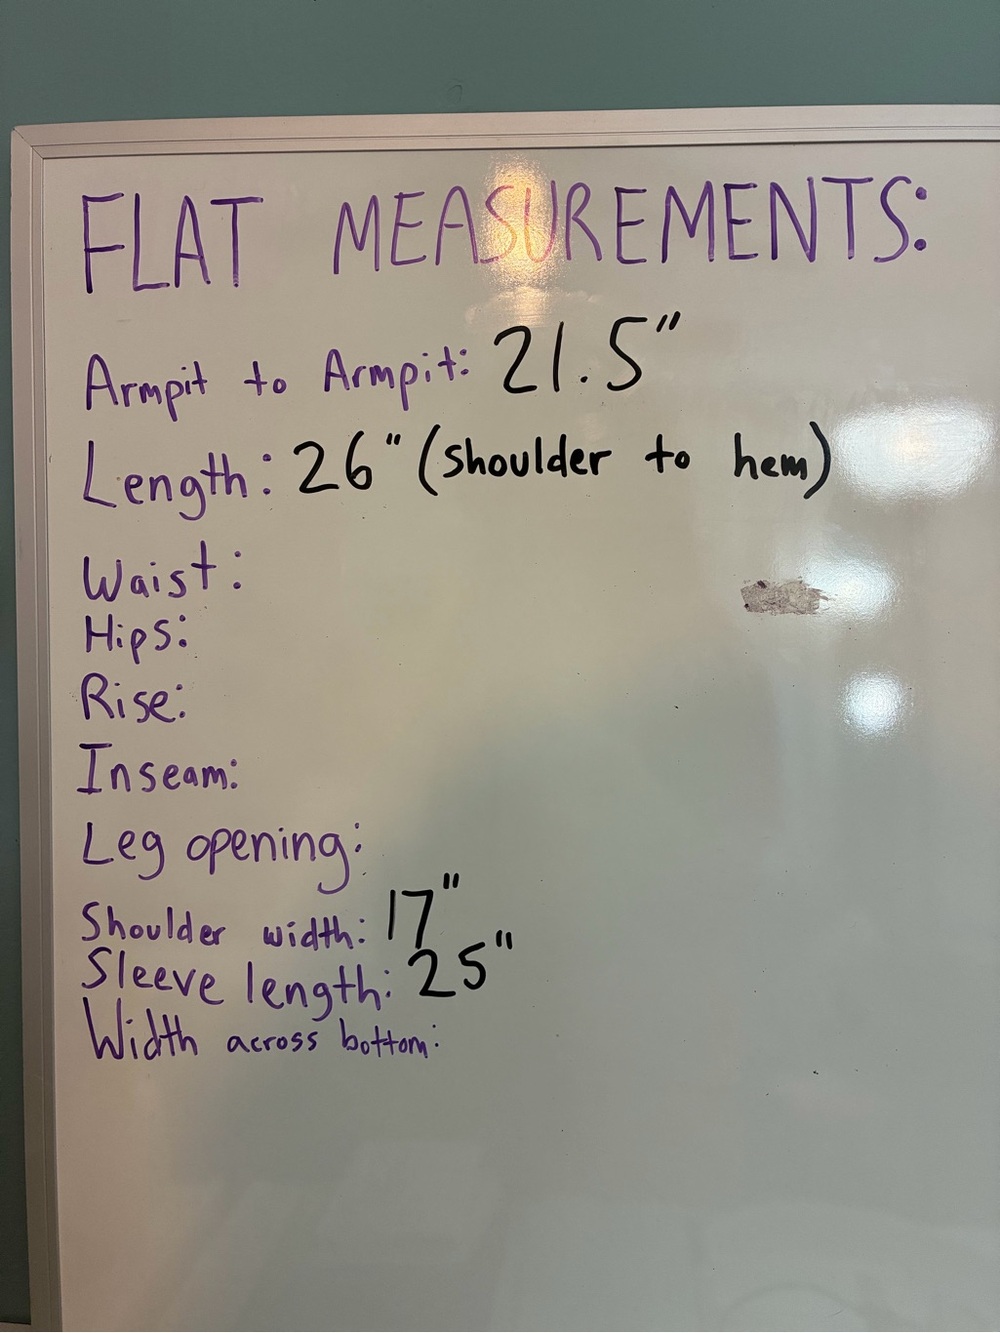 FLAT MEASUREMENTS:
Armpit to Armpit: 21.5"
Length: 26" (shoulder to hem)
Waist:
Hips:
Rise:
Inseam:
Leg opening:
Shoulder width: 17"
Sleeve length: 25"
Width across bottom: